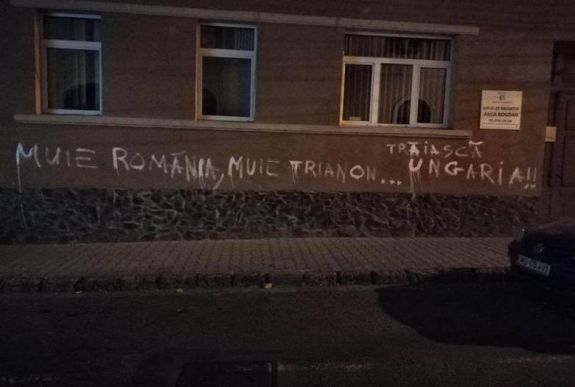 MUIE ROMÂNIA, MUIE TRIANON... TRĂIASCĂ
UNGARIA!!
"ANCA BOGDAN"